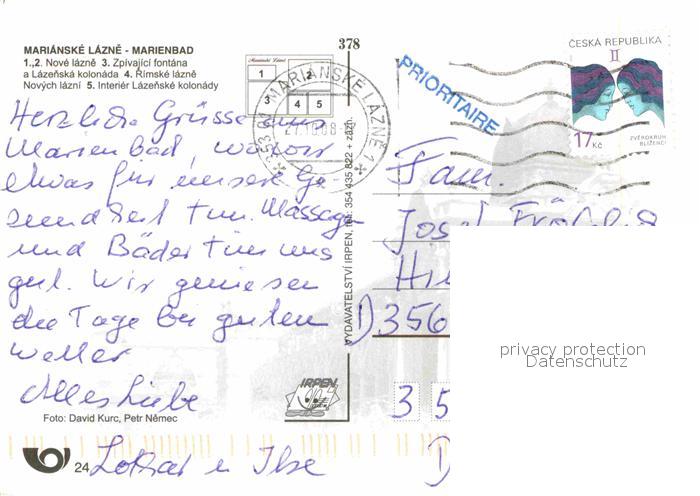 378
MARIÁNSKÉ LÁZNĚ - MARIENBAD
1.,2. Nové lázně 3. Zpívající fontána
a Lázeňská kolonáda 4. Římské lázně
Nových lázní 5. Interiér Lázeňské kolonády
Mariánské Lázně
1 2
3 4 5
MARIÁNSKÉ LÁZNĚ 1
353 01
PRIORITAIRE
ČESKÁ REPUBLIKA
II
17 Kč
ZVĚROKRUH
BLÍŽENCI
Herzliche Grüsse aus
Marienbad, wo wir
etwas für unsere Ge-
sundheit tun. Massage
und Bäder tun uns
gut. Wir geniesen
die Tage bei guten
Wetter
Alles Liebe
Lothar u Ilse
VYDAVATELSTVÍ IRPEN, tel.: 354 435 822 + zázn.
IRPEN
Foto: David Kurc, Petr Němec
24
Fam.
Josef Fröhlich
D 356
3 5
D
privacy protection
Datenschutz